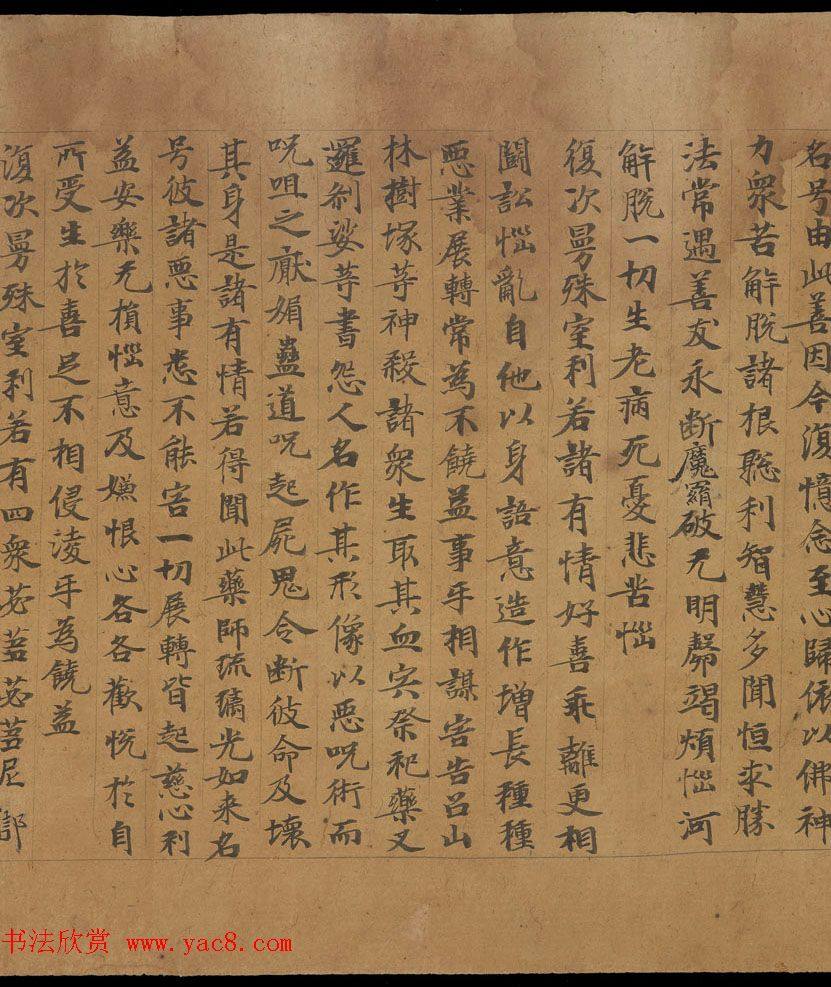 名号由此善因今復憶念至心歸依以佛神
力衆苦解脫諸根聡利智慧多聞恒求勝
法常遇善友永断魔羂破无明㲉竭煩惱河
解脫一切生老病死憂悲苦惱
復次曼殊室利若諸有情好喜乖離更相
鬪訟惱亂自他以身語意造作增長種種
惡業展轉常為不饒益事乎相謀害告召山
林樹塚等神殺諸衆生取其血宍祭祀藥叉
邏刹娑等書怨人名作其形像以惡呪術而
呪咀之厭媚蠱道呪起屍鬼令断彼命及壞
其身是諸有情若得聞此藥師琉璃光如来名
号彼諸惡事悉不能害一切展轉皆起慈心利
益安樂无損惱意及嫌恨心各各歡悅於自
所受生於喜足不相侵淩乎為饒益
復次曼殊室利若有四衆苾蒭苾蒭尼鄔
书法欣赏 www.yac8.com